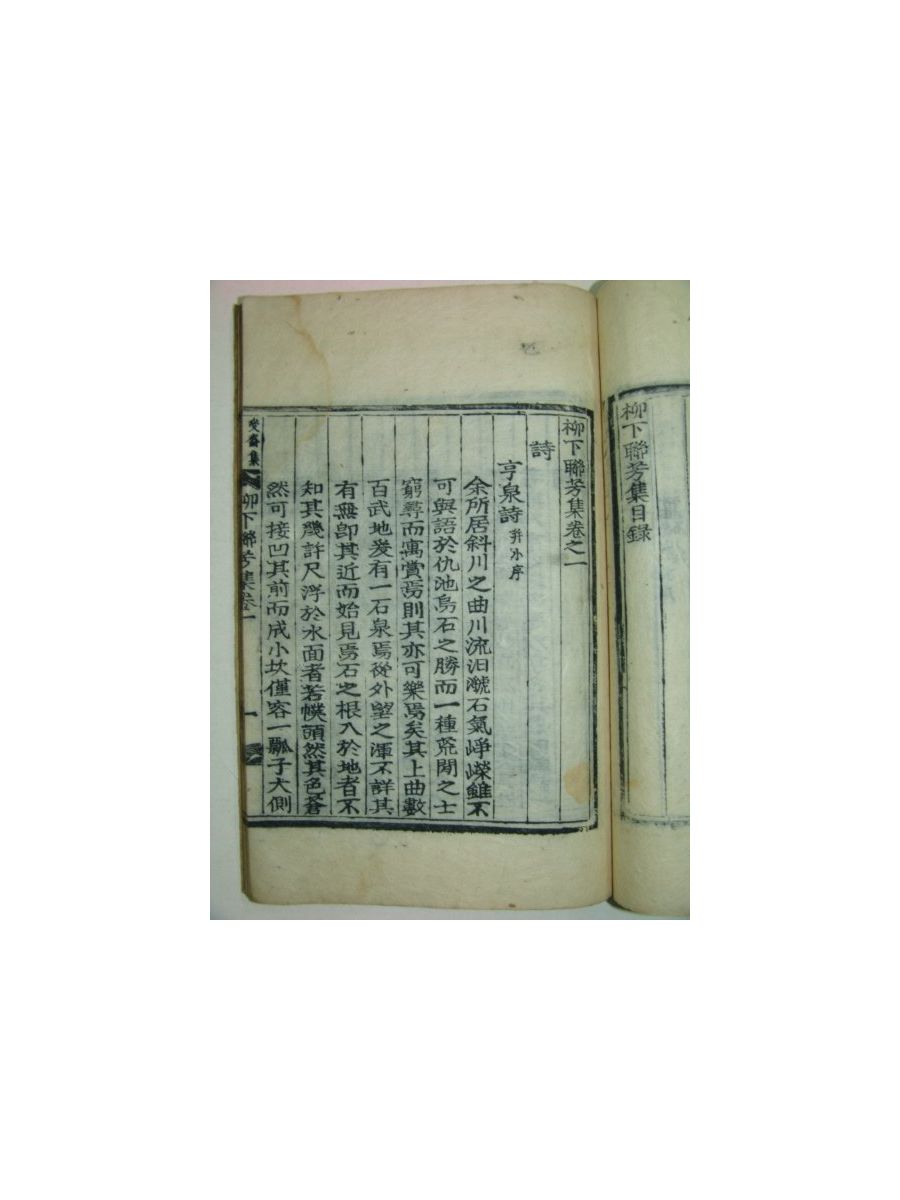 柳下聯芳集目錄
柳下聯芳集卷之一
詩
亨泉詩 并小序
余所居斜川之曲川流汨㶁石氣崢嶸雖不
可與語於仇池島石之勝而一種荒閒之士
窮尋而寓賞焉則其亦可樂焉矣其上曲數
百武地爰有一石泉焉從外望之渾不詳其
有無卽其近而始見焉石之根入於地者不
知其幾許尺浮於水面者若幞頭然其色蒼
然可接凹其前而成小坎僅容一瓢子大側
集
柳下聯芳集卷一
一